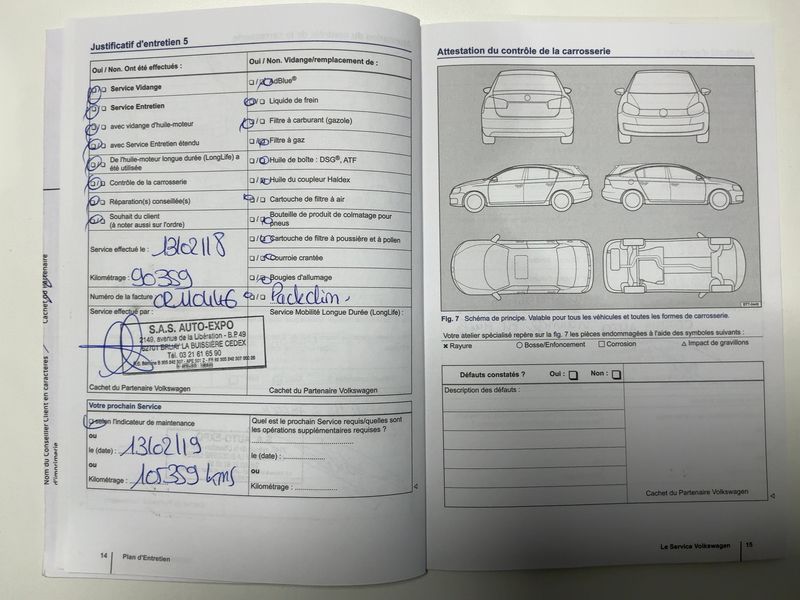 Justificatif d'entretien 5
Oui / Non. Ont été effectués :
Service Vidange
Service Entretien
avec vidange d'huile-moteur
avec Service Entretien étendu
De l'huile-moteur longue durée (LongLife) a
été utilisée
Contrôle de la carrosserie
Réparation(s) conseillée(s)
Souhait du client
(à noter aussi sur l'ordre)
Service effectué le : 13/02/18
Kilométrage : 90359
Numéro de la facture
Service effectué par :
S.A.S. AUTO-EXPO
2149, avenue de la Libération - B.P 49
62701 BRUAY LA BUISSIÈRE CEDEX
Tél. 03 21 61 65 90
Cachet du Partenaire Volkswagen
Oui / Non. Vidange/remplacement de :
AdBlue®
Liquide de frein
Filtre à carburant (gazole)
Filtre à gaz
Huile de boîte : DSG®, ATF
Huile du coupleur Haldex
Cartouche de filtre à air
Bouteille de produit de colmatage pour
pneus
Cartouche de filtre à poussière et à pollen
Courroie crantée
Bougies d'allumage
Pack clim
Service Mobilité Longue Durée (LongLife) :
Cachet du Partenaire Volkswagen
Votre prochain Service
selon l'indicateur de maintenance
ou
le (date) : 13/02/19
ou
Kilométrage : 105359 kms
Quel est le prochain Service requis/quelles sont
les opérations supplémentaires requises ?
le (date) :
ou
Kilométrage :
14 Plan d'Entretien
Nom du Conseiller Client en caractères
d'imprimerie
Cachet du Partenaire
Attestation du contrôle de la carrosserie
Fig. 7 Schéma de principe. Valable pour tous les véhicules et toutes les formes de carrosserie.
Votre atelier spécialisé repère sur la fig. 7 les pièces endommagées à l'aide des symboles suivants :
× Rayure ○ Bosse/Enfoncement □ Corrosion △ Impact de gravillons
Défauts constatés ? Oui : □ Non : □
Description des défauts :
Cachet du Partenaire Volkswagen
Le Service Volkswagen 15